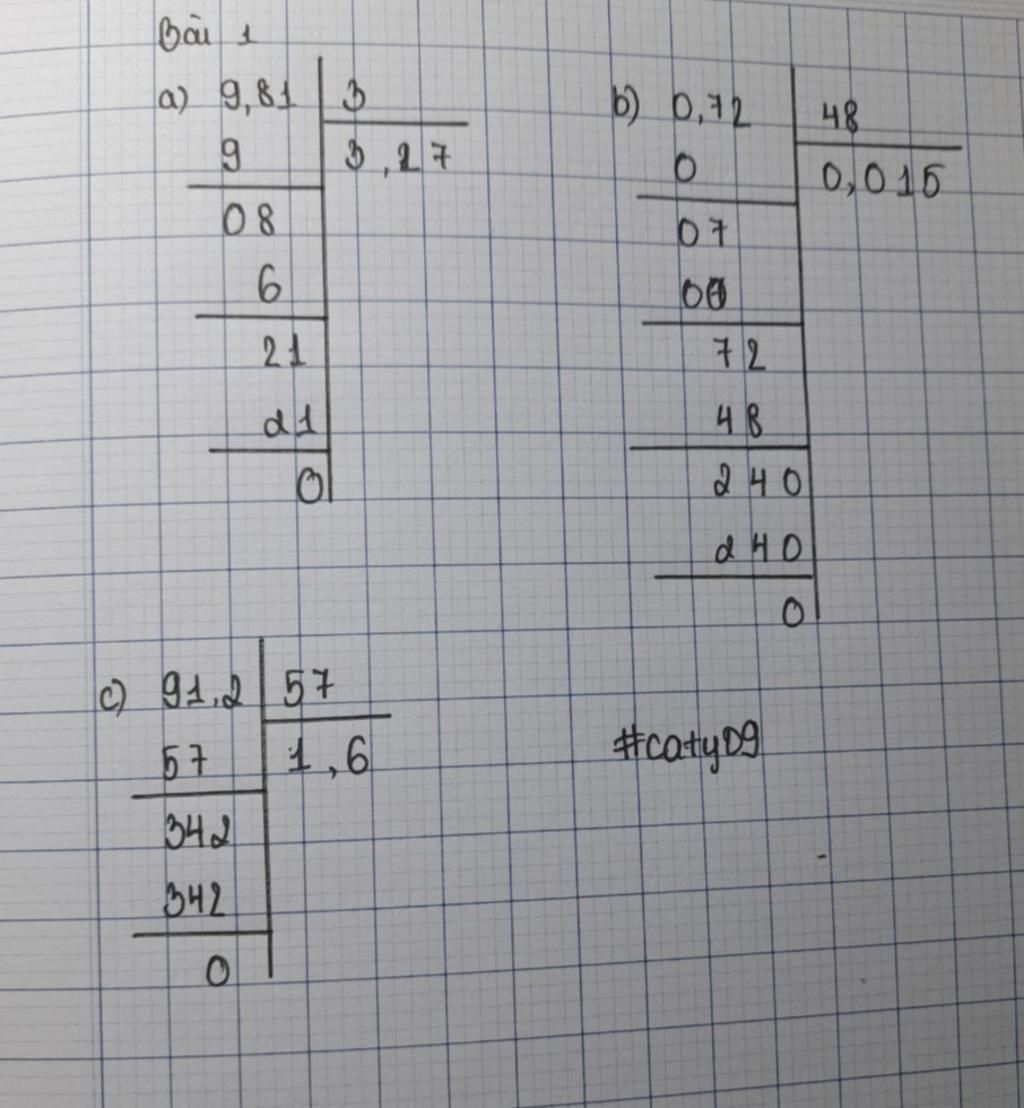 Bài 1
a) 9,81 3
9 3,27
08
6
21
21
0
b) 0,72 48
0 0,015
07
00
72
48
240
240
0
c) 91,2 57
57 1,6
342
342
0
#caty09